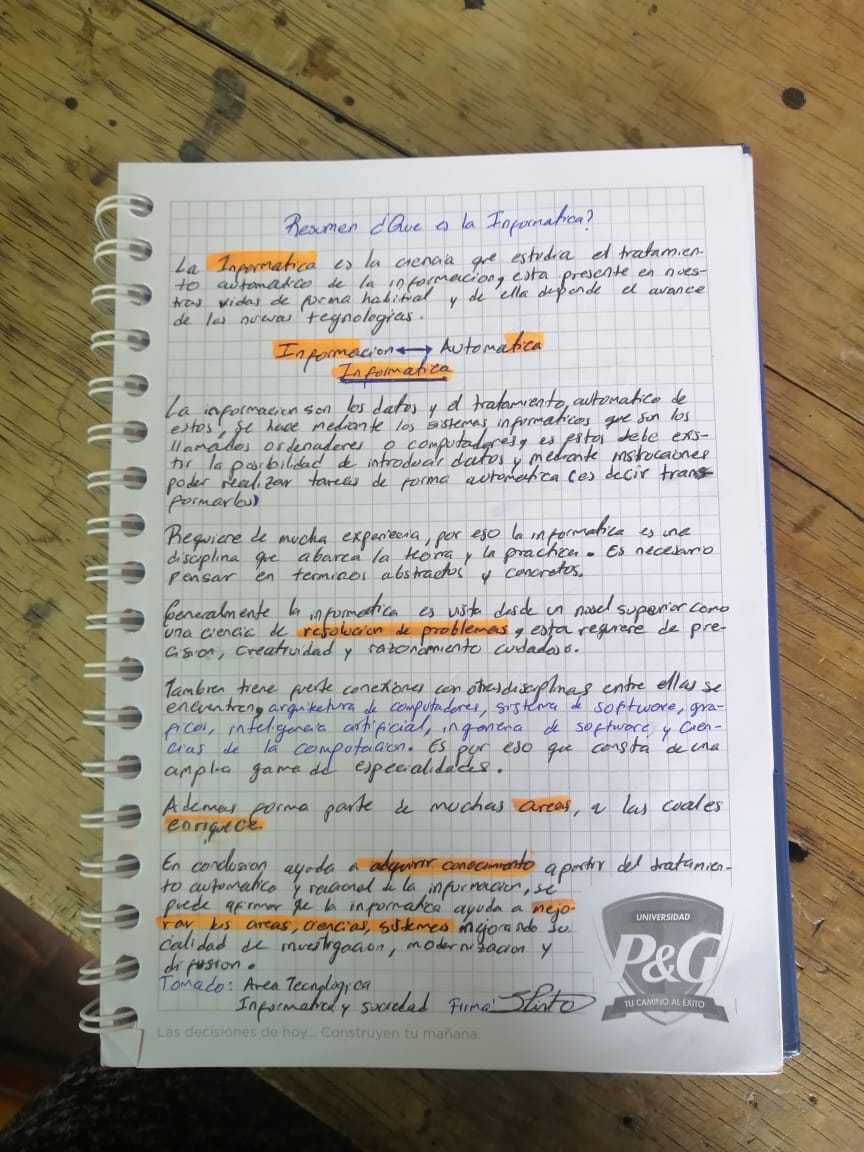 Resumen ¿Que es la Informatica?
La Informatica es la ciencia que estudia el tratamien-
to automatico de la informacion, esta presente en nues-
tras vidas de forma habitual y de ella depende el avance
de las nuevas tegnologias.
Informacion ↔ Automatica
Informatica
La informacion son los datos y el tratamiento automatico de
estos, se hace mediante los sistemas informaticos que son los
llamados ordenadores o computadores, es estos debe exis-
tir la posibilidad de introducir datos y mediante instrucciones
poder realizar tareas de forma automatica (es decir trans-
formarlos)
Requiere de mucha experiecia, por eso la informatica es una
disciplina que abarca la teoria y la practica. Es necesario
pensar en terminos abstractos y concretos.
Generalmente la informatica es vista desde un nivel superior como
una ciencia de resolucion de problemas y esta requiere de pre-
cision, creatividad y razonamiento cuidadoso.
Tambien tiene fuerte conexiones con otras disciplinas entre ellas se
encuentren, arquitetura de computadores, sistema de software, gra-
ficos, inteligencia artificial, ingenera de software, y Cien-
cias de la computacion. Es por eso que consta de una
amplia gama de especialidades.
Ademas forma parte de muchas areas, a las cuales
enriquece.
En conclusion ayuda a adquirir conocimiento a partir del tratamien-
to automatico y racional de la informacion, se
puede afirmar que la informatica ayuda a mejo-
rar las areas, ciencias, sistemas mejorando su
calidad de investigacion, modernizacion y
difusion.
Tomado: Area Tecnologica
Informatica y sociedad Firma:
UNIVERSIDAD
P&G
TU CAMINO AL ÉXITO
Las decisiones de hoy... Construyen tu mañana.